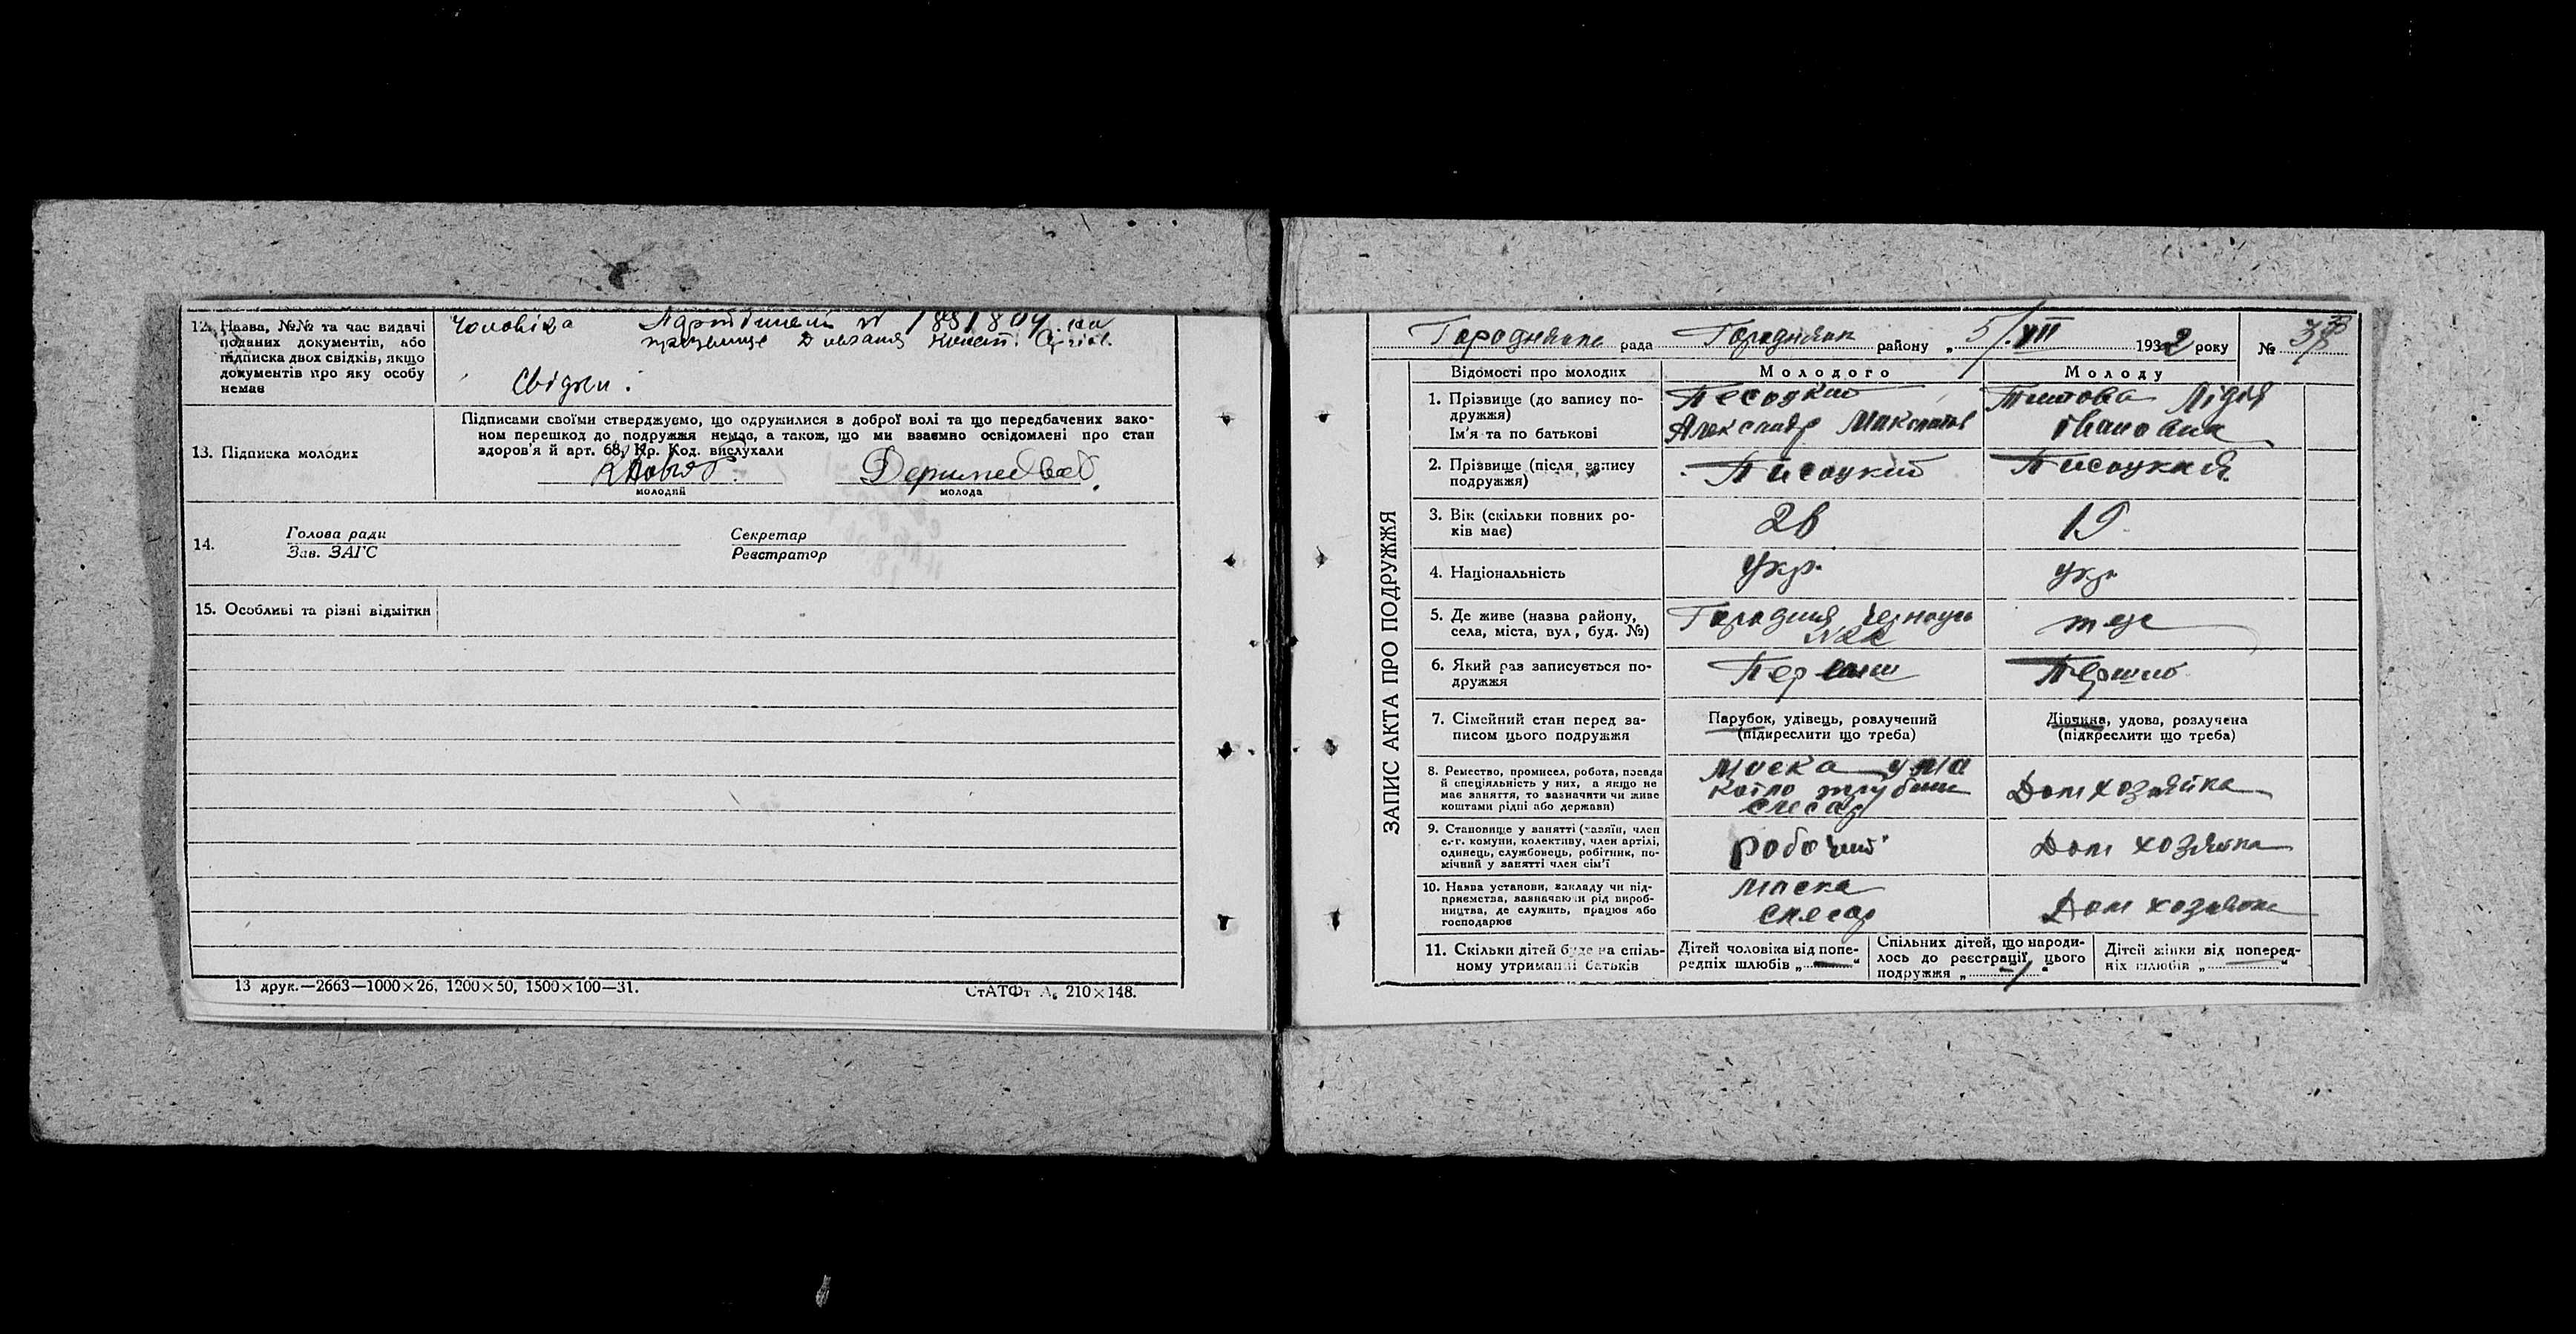 12. Назва, №№ та час видачі поданих документів, або підписка двох свідків, якщо документів про яку особу немає
Чоловіка
1881804
прізвище
Свідки:
13. Підписка молодих
Підписами своїми стверджуємо, що одружилися в доброї волі та що передбачених зако-
ном перешкод до подружжя немає, а також, що ми взаємно освідомлені про стан
здоров'я й арт. 68, Кр. Код. вислухали
молодий
молода
14.
Голова ради
Зав. ЗАГС
Секретар
Реєстратор
15. Особливі та різні відмітки
13 друк.—2663—1000×26, 1200×50, 1500×100—31.
СтАТФт А₅ 210×148.
ЗАПИС АКТА ПРО ПОДРУЖЖЯ
рада
району
5/VII 1932 року
№
Відомості про молодих
Молодого
Молоду
1. Прізвище (до запису по-
дружжя)
Ім'я та по батькові
Песоцкий
Александр
Титова Лідія
Івановна
2. Прізвище (після запису
подружжя)
Писоцкий
Писоцкая
3. Вік (скільки повних ро-
ків має)
26
19
4. Національність
Укр.
Укр
5. Де живе (назва району,
села, міста, вул, буд. №)
Городня
теж
6. Який раз записується по-
дружжя
Перший
7. Сімейний стан перед за-
писом цього подружжя
Парубок, удівець, розлучений
(підкреслити що треба)
Дівчина, удова, розлучена
(підкреслити що треба)
8. Ремество, промисел, робота, посада
й спеціяльність у них, а якщо не
має заняття, то зазначити чи живе
коштами рідні або держави)
слесар
Дом хозяйка
9. Становище у занятті (хазяїн, член
с.-г. комуни, колективу, член артілі,
одинець, службовець, робітник, по-
мічний у занятті член сім'ї
робочий
Дом хозяйка
10. Назва установи, закладу чи під-
приємства, зазначаючи рід вироб-
ництва, де служить, працює або
господарює
слесар
Дом хозяйка
11. Скільки дітей буде на спіль-
ному утриманні батьків
Дітей чоловіка від попе-
редніх шлюбів „ — “
Спільних дітей, що народи-
лось до реєстрації цього
подружжя „
Дітей жінки від поперед-
ніх шлюбів „